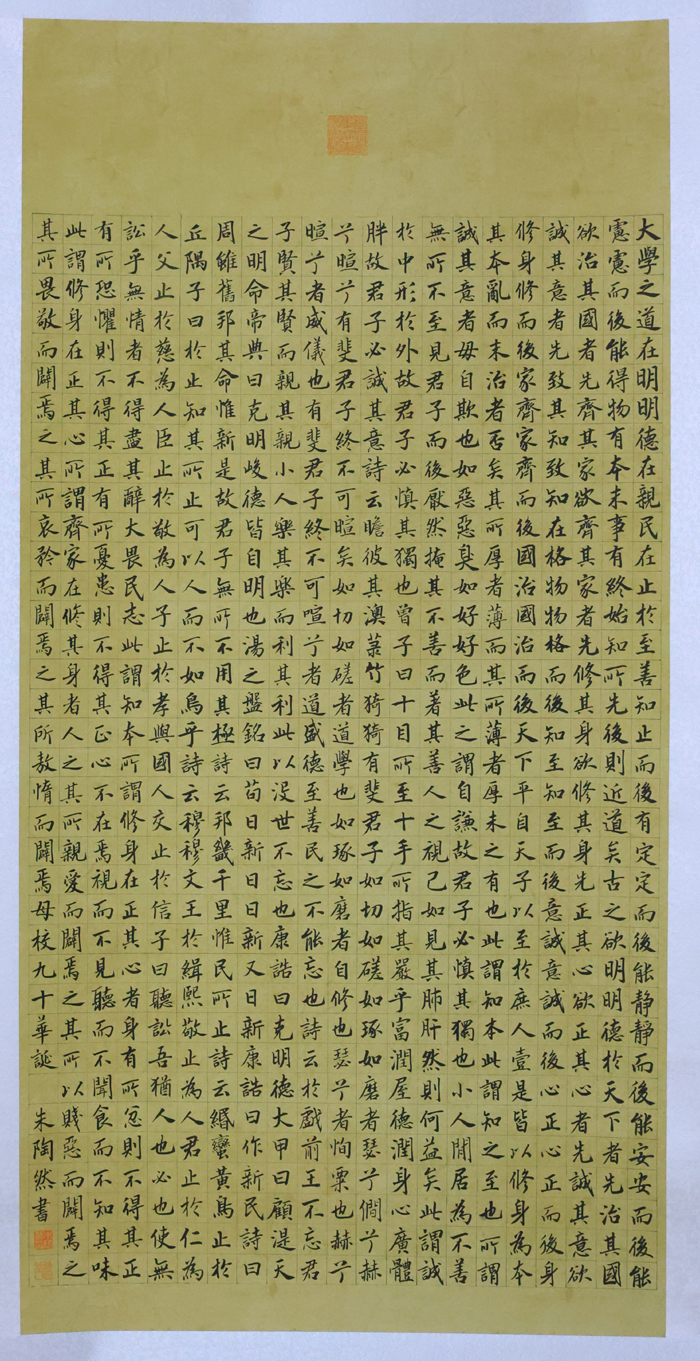 大學之道在明明德在親民在止於至善知止而後有定定而後能静静而後能安安而後能
慮慮而後能得物有本末事有終始知所先後則近道矣古之欲明明德於天下者先治其國
欲治其國者先齊其家欲齊其家者先修其身欲修其身先正其心欲正其心者先誠其意欲
誠其意者先致其知致知在格物物格而後知至知至而後意誠意誠而後心正心正而後身
修身修而後家齊家齊而後國治國治而後天下平自天子以至於庶人壹是皆以修身為本
其本亂而末治者否矣其所厚者薄而其所薄者厚未之有也此謂知本此謂知之至也所謂
誠其意者毋自欺也如惡惡臭如好好色此之謂自謙故君子必慎其獨也小人閒居為不善
無所不至見君子而後厭然掩其不善而著其善人之視己如見其肺肝然則何益矣此謂誠
於中形於外故君子必慎其獨也曾子曰十目所至十手所指其嚴乎富潤屋德潤身心廣體
胖故君子必誠其意詩云瞻彼其澳菉竹猗猗有斐君子如切如磋如琢如磨者瑟兮僩兮赫
兮暄兮有斐君子終不可暄矣如切如磋者道學也如琢如磨者自修也瑟兮者恂栗也赫兮
暄兮者威儀也有斐君子終不可喧兮者道盛德至善民之不能忘也詩云於戲前王不忘君
子賢其賢而親其親小人樂其樂而利其利此以沒世不忘也康誥曰克明德大甲曰顧諟天
之明命帝典曰克明峻德皆自明也湯之盤銘曰苟日新日日新又日新康誥曰作新民詩曰
周雖舊邦其命惟新是故君子無所不用其極詩云邦畿千里惟民所止詩云緡蠻黃鳥止於
丘隅子曰於止知其所止可以人而不如鳥乎詩云穆穆文王於緝熙敬止為人君止於仁為
人父止於慈為人臣止於敬為人子止於孝與國人交止於信子曰聽訟吾猶人也必也使無
訟乎無情者不得盡其辭大畏民志此謂知本所謂修身在正其心者身有所忿則不得其正
有所恐懼則不得其正有所憂患則不得其正心不在焉視而不見聽而不聞食而不知其味
此謂修身在正其心所謂齊家在修其身者人之其所親愛而闢焉之其所以賤惡而闢焉之
其所畏敬而闢焉之其所哀矜而闢焉之其所敖惰而闢焉母校九十華誕 朱陶然書